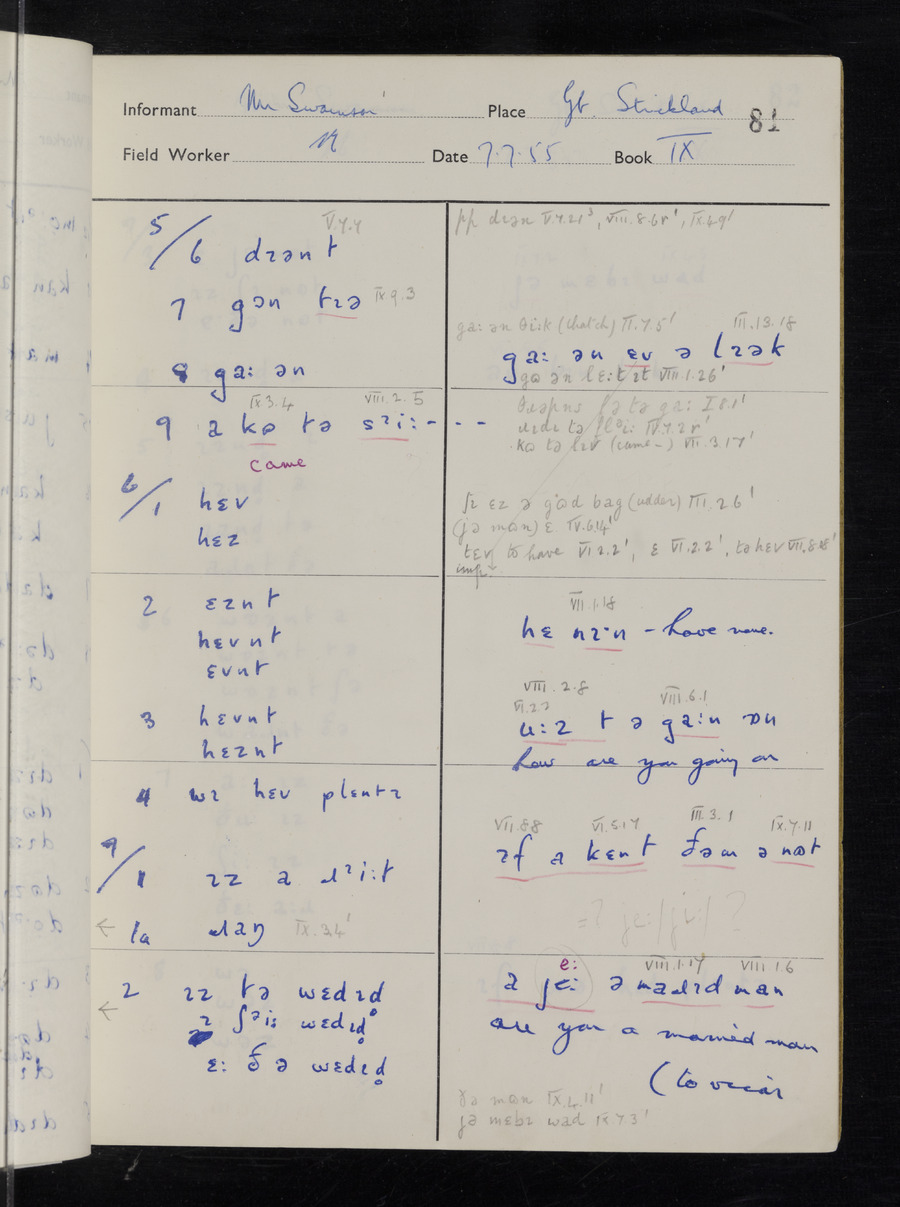 Informant Mr Swainson Place Gt. Strickland 81
Field Worker N Date 7.7.55 Book IX
5/6 dɪənt V.7.7
7 gən tɪə IX 9.3
8 ga: ən
9 a kɷ tə sᵊi: - - -
IX 3.4 VIII.2.5
came
6/1 hɛv
hɛz
2 ɛznt
hɛvnt
ɛvnt
3 hɛvnt
hɛznt
4 wɪ hɛv plɛntɪ
9/1 ɪz a ɹᵊi:t
← 1a ɹaŋ IX.3.4'
← 2 ɪz tə wɛdɪd
ɪ ʃəiz wɛdɪd
ɛ: ðə wɛdɪd
pp dɪən V.7.21³, VIII.8.68', IX.4.9'
ga: ən θɪik (thatch) II.7.5' III.13.18
ga: ən ɛv ə lɪək
gɷ ən lɛ:t ɪt VIII.1.26'
tə ga: I 8.1'
tə IV.7.28'
kɷ tə lɪv (came-) VII.3.17'
ʃɪ ɛz ə gɷd bag (udder) III.2.6'
(jə man) ɛ IV.6.14'
tɛv to have VI 2.2', ɛ VI.2.2', tə hɛv VII.8.8'
imp.
VII.1.18
hɛ nɪ·n - have none.
VIII.2.8
VI.2.2 VIII.6.1
u:z t ə ga:n ɒn
how are you going on
VII.8.8 VI.5.17 III.3.1 IX.7.11
ɪf a kɛnt ðəm ə nɒt
=? je:/jɪ:/ ?
e: VIII.1.17 VIII 1.6
a jɛ: ə maɹɪd man
are you a married man
(to vicar
jə man IX.4.11'
jə mɛbɪ wad IX.7.3'